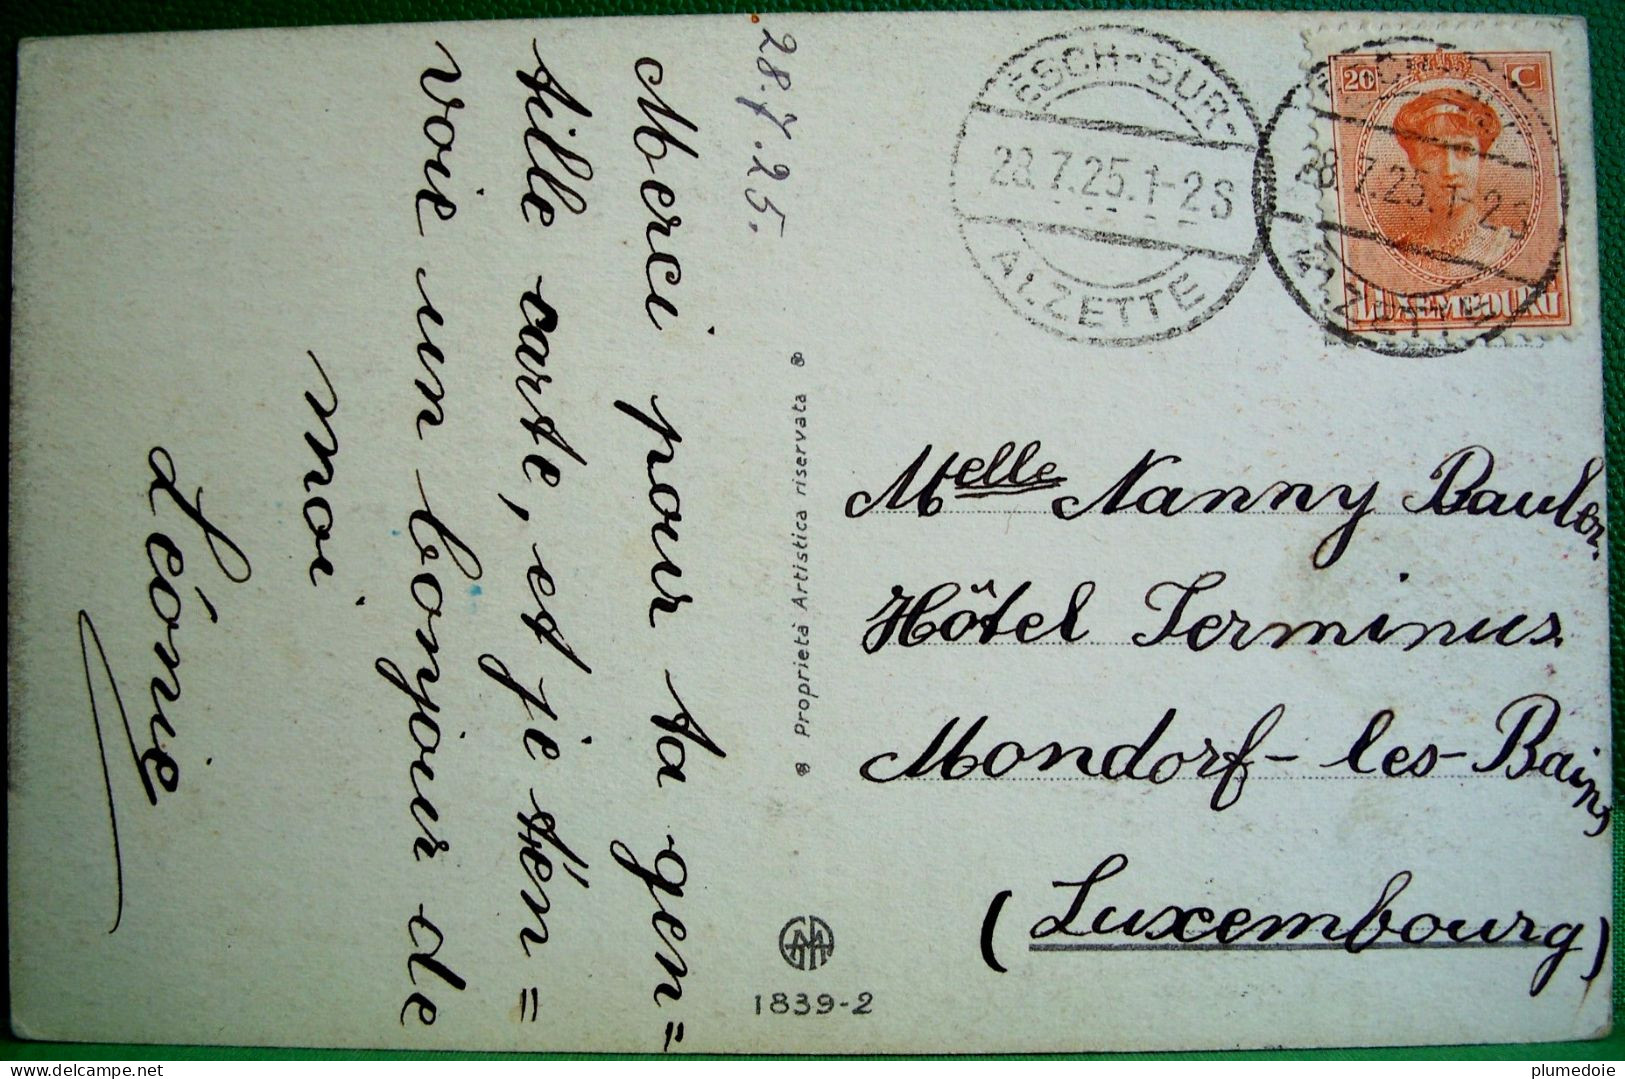 28.7.25.
Merci pour ta gen=
tille carte, et je t'en=
voie un bonjour de
moi
Léonie
Proprietà Artistica riservata
1839-2
ESCH-SUR-
28.7.25.1-2S
ALZETTE
20 C
LUXEMBOURG
28.7.25.1-2S
ALZETTE
Melle Nanny Bauler.
Hôtel Terminus.
Mondorf-les-Bains
(Luxembourg)
delcampe.net
plumedoie